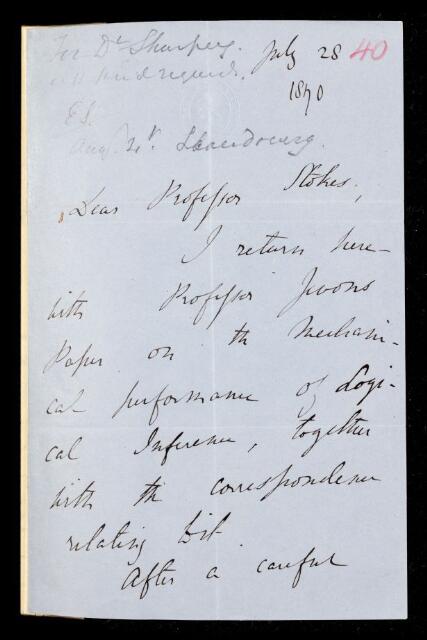 For Dr Sharpey. July 28 40
kind regards.
1870
Dear Professor Stokes,
I return here-
with Professor Jevons
Paper on the Mechani-
cal performance of Logi-
cal Inference, together
with the correspondence
relating to it.
After a careful